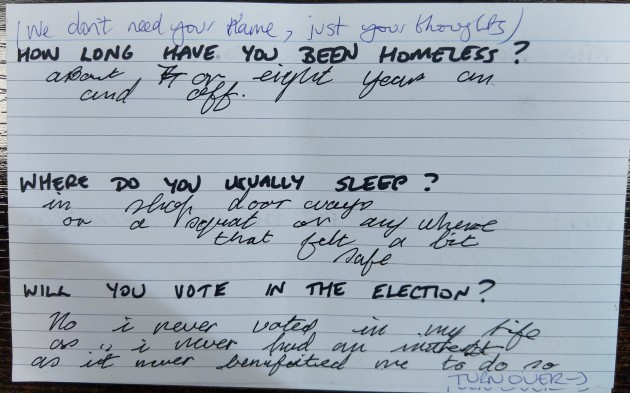 (We don't need your name, just your thoughts)
HOW LONG HAVE YOU BEEN HOMELESS?
about 7 or eight years on
and off.
WHERE DO YOU USUALLY SLEEP?
in shop door ways
or a squat or any where
that felt a bit
safe
WILL YOU VOTE IN THE ELECTION?
No i never voted in my life
as i never had an interest
as it never benefitied me to do so
TURN OVER→)